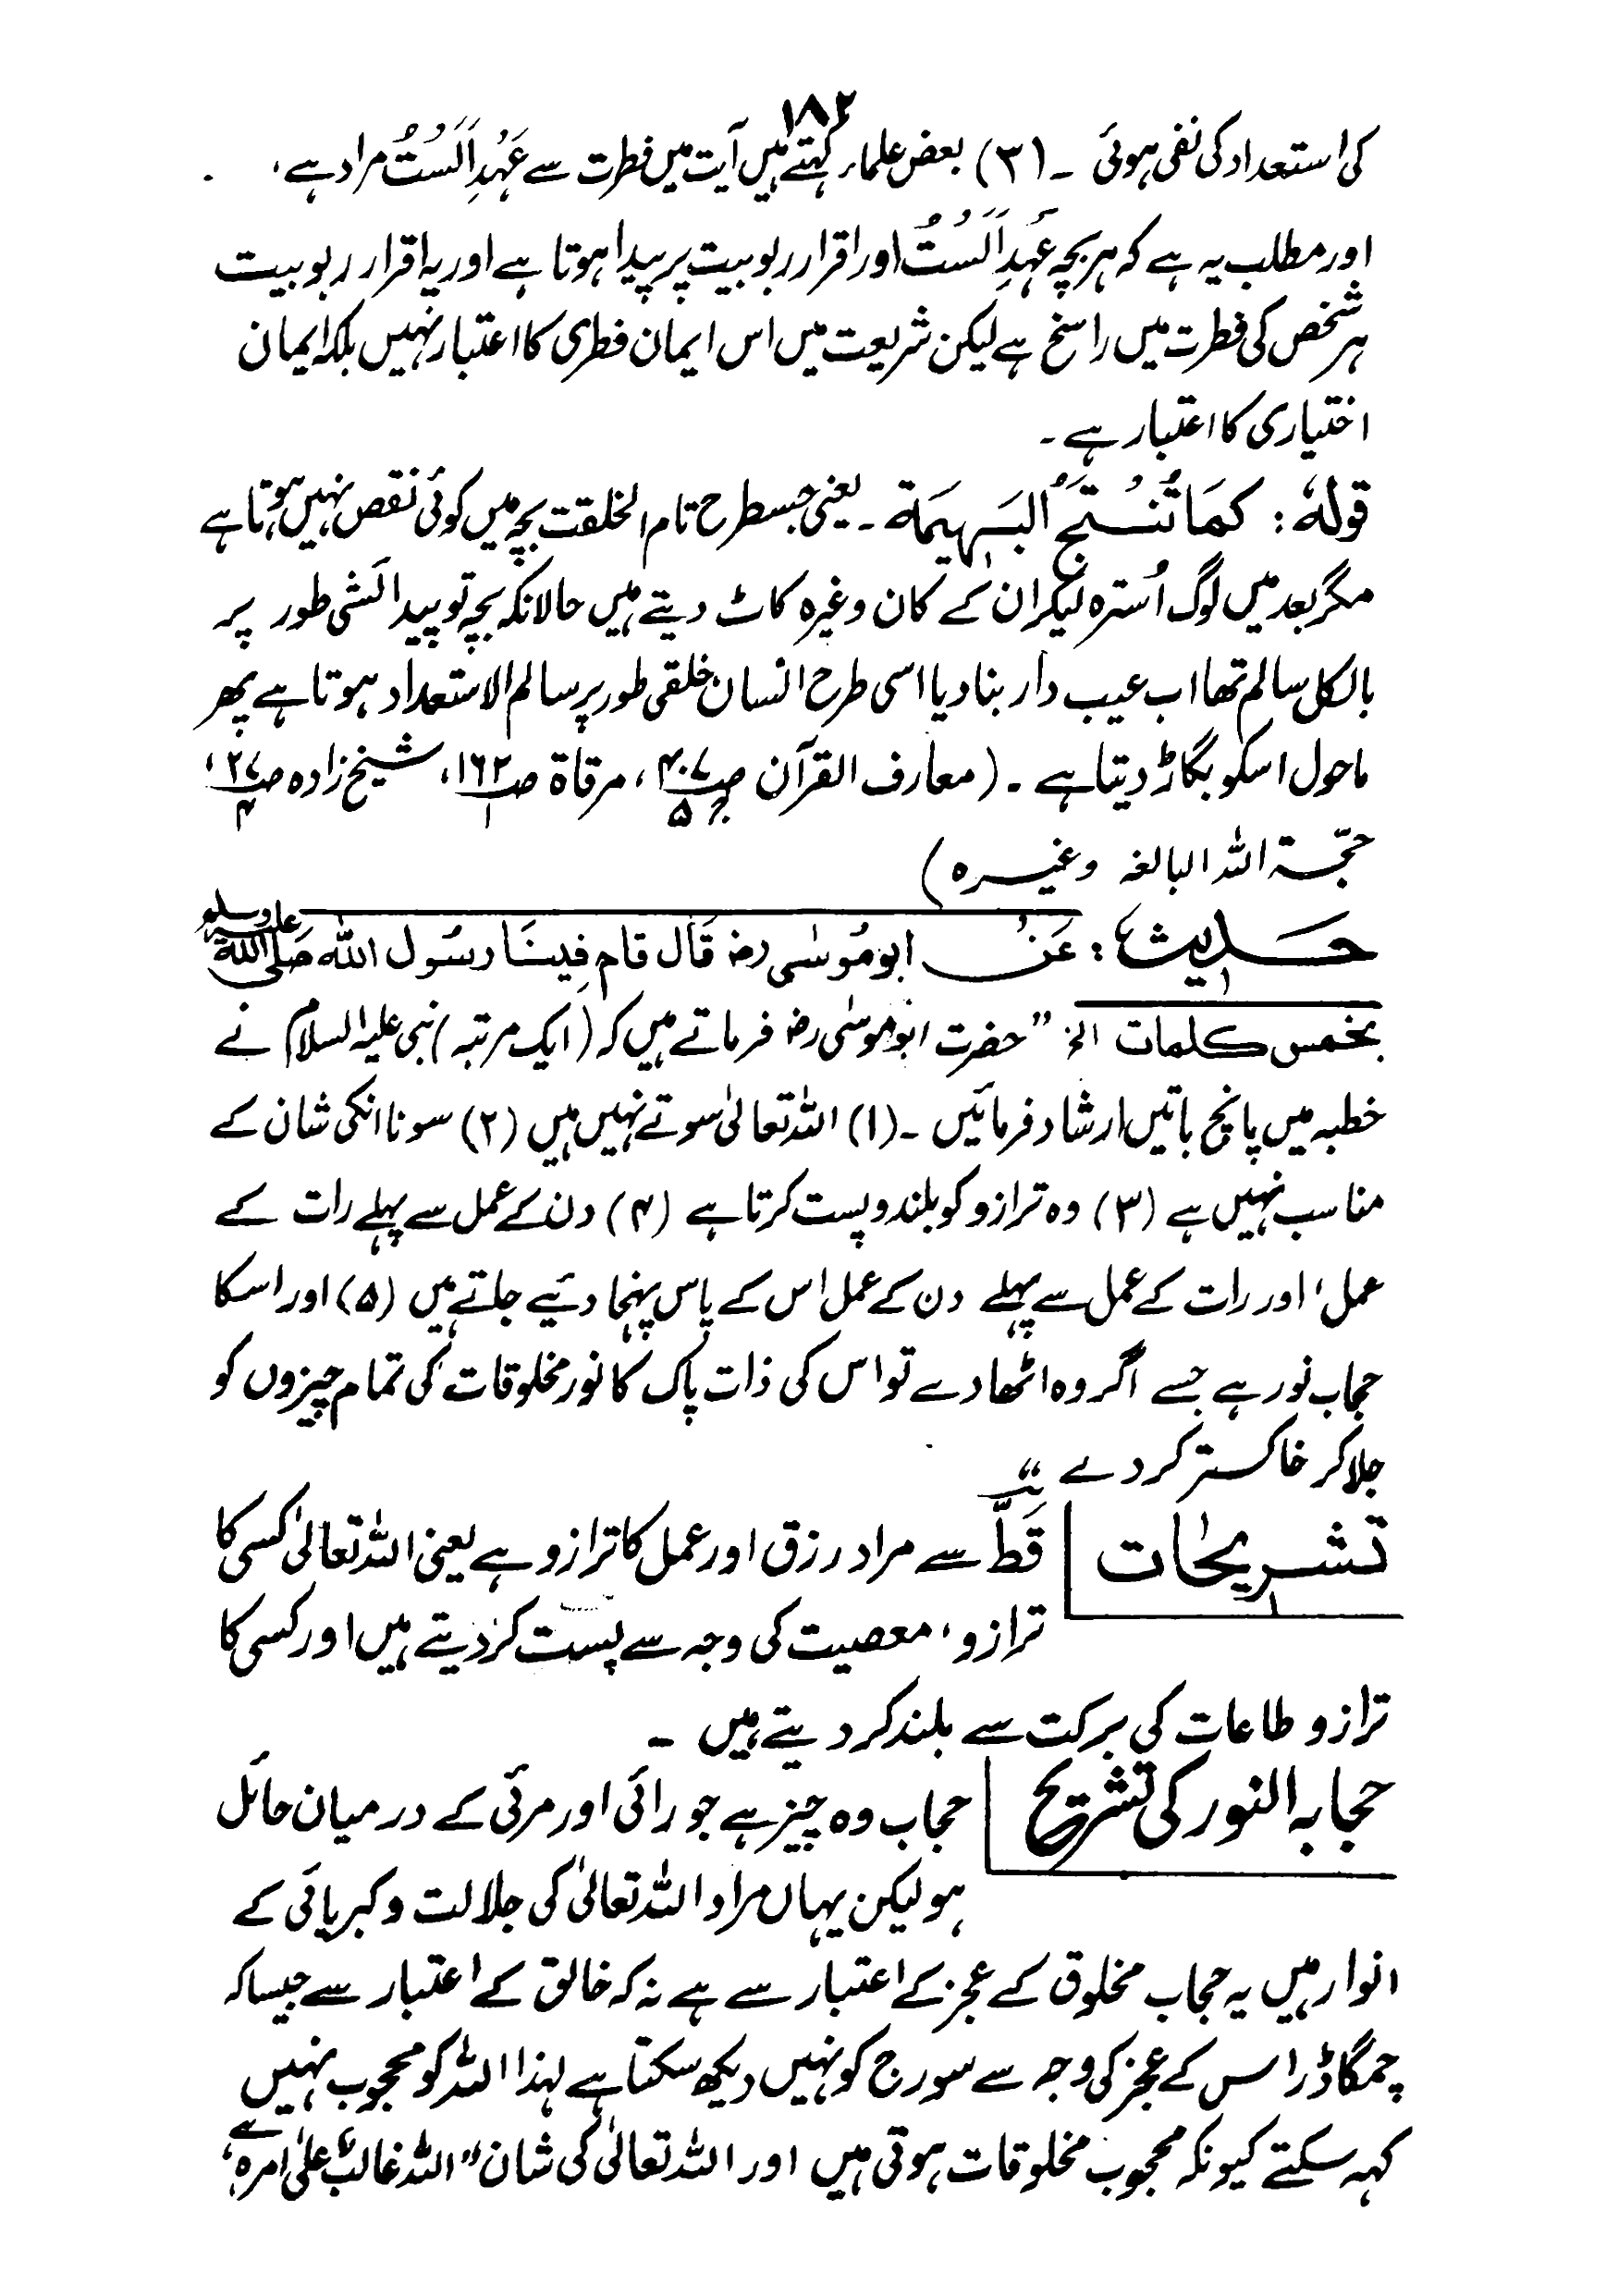 ۱۸۲
کی استعداد کی نفی ہوئی ۔ (۳) بعض علماء کہتے ہیں آیت میں فطرت سے عَہْدِ اَلَسْتُ مراد ہے،
اور مطلب یہ ہے کہ ہر بچہ عَہْدِ اَلَسْتُ اور اقرار ربوبیت پر پیدا ہوتا ہے اور یہ اقرار ربوبیت
ہر شخص کی فطرت میں راسخ ہے لیکن شریعت میں اس ایمان فطری کا اعتبار نہیں بلکہ ایمان
اختیاری کا اعتبار ہے ۔
قولہٗ : کَمَا تُنْتَجُ البَہِیمَۃ ۔ یعنی جسطرح تام الخلقت بچہ میں کوئی نقص نہیں ہوتا ہے
مگر بعد میں لوگ اُسترہ لیکر ان کے کان وغیرہ کاٹ دیتے ہیں حالانکہ بچہ تو پیدائشی طور پر
بالکل سالم تھا اب عیب دار بنا دیا اسی طرح انسان خلقی طور پر سالم الاستعداد ہوتا ہے پھر
ماحول اسکو بگاڑ دیتا ہے ۔ (معارف القرآن ص۴۰۷ ج۵، مرقاۃ ص۱۶۲ ۱، شیخ زادہ ص۲۷ ۴،
حجّۃ اللہ البالغہ وغیرہ)
حدیث : عَنْ ابو مُوسٰی رض قَال قام فِینَا رسُول اللہ صَلی اللہ علیہ وسلم
بخمس کلمات الخ ”حضرت ابو موسٰی رض فرماتے ہیں کہ (ایک مرتبہ) نبی علیہ السلام نے
خطبہ میں پانچ باتیں ارشاد فرمائیں ۔ (۱) اللہ تعالیٰ سوتے نہیں ہیں (۲) سونا انکی شان کے
مناسب نہیں ہے (۳) وہ ترازو کو بلند و پست کرتا ہے (۴) دن کے عمل سے پہلے رات کے
عمل، اور رات کے عمل سے پہلے دن کے عمل اس کے پاس پہنچا دئیے جاتے ہیں (۵) اور اسکا
حجاب نور ہے جسے اگر وہ اٹھا دے تو اس کی ذات پاک کا نور مخلوقات کی تمام چیزوں کو
جلا کر خاکستر کر دے“
تشریحات قَطّ سے مراد رزق اور عمل کا ترازو ہے یعنی اللہ تعالیٰ کسی کا
ترازو، معصیت کی وجہ سے پست کر دیتے ہیں اور کسی کا
ترازو طاعات کی برکت سے بلند کر دیتے ہیں ۔
حجابہ النور کی تشریح حجاب وہ چیز ہے جو رائی اور مرئی کے درمیان حائل
ہو لیکن یہاں مراد اللہ تعالیٰ کی جلالت و کبریائی کے
انوار ہیں یہ حجاب مخلوق کے عجز کے اعتبار سے ہے نہ کہ خالق کے اعتبار سے جیسا کہ
چمگاڈر اس کے عجز کی وجہ سے سورج کو نہیں دیکھ سکتا ہے لہذا اللہ کو محجوب نہیں
کہہ سکتے کیونکہ محجوب مخلوقات ہوتی ہیں اور اللہ تعالیٰ کی شان ”اللہ غالبٌ علیٰ امرہ“